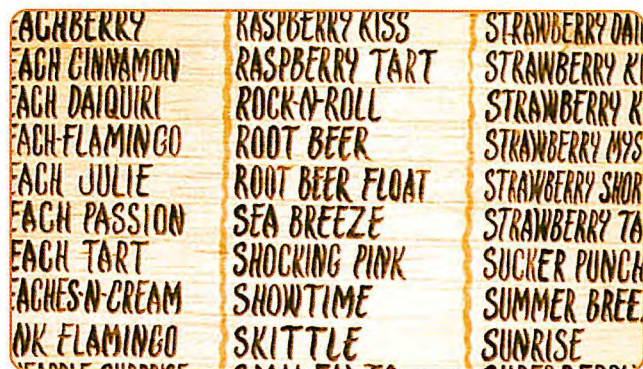 EACHBERRY
EACH CINNAMON
EACH DAIQUIRI
EACH-FLAMINGO
EACH JULIE
EACH PASSION
EACH TART
EACHES-N-CREAM
NK FLAMINGO
RASPBERRY KISS
RASPBERRY TART
ROCK-N-ROLL
ROOT BEER
ROOT BEER FLOAT
SEA BREEZE
SHOCKING PINK
SHOWTIME
SKITTLE
STRAWBERRY DAI
STRAWBERRY
STRAWBERRY
STRAWBERRY MYS
STRAWBERRY SHOR
STRAWBERRY TA
SUCKER PUNCH
SUMMER BREE
SUNRISE